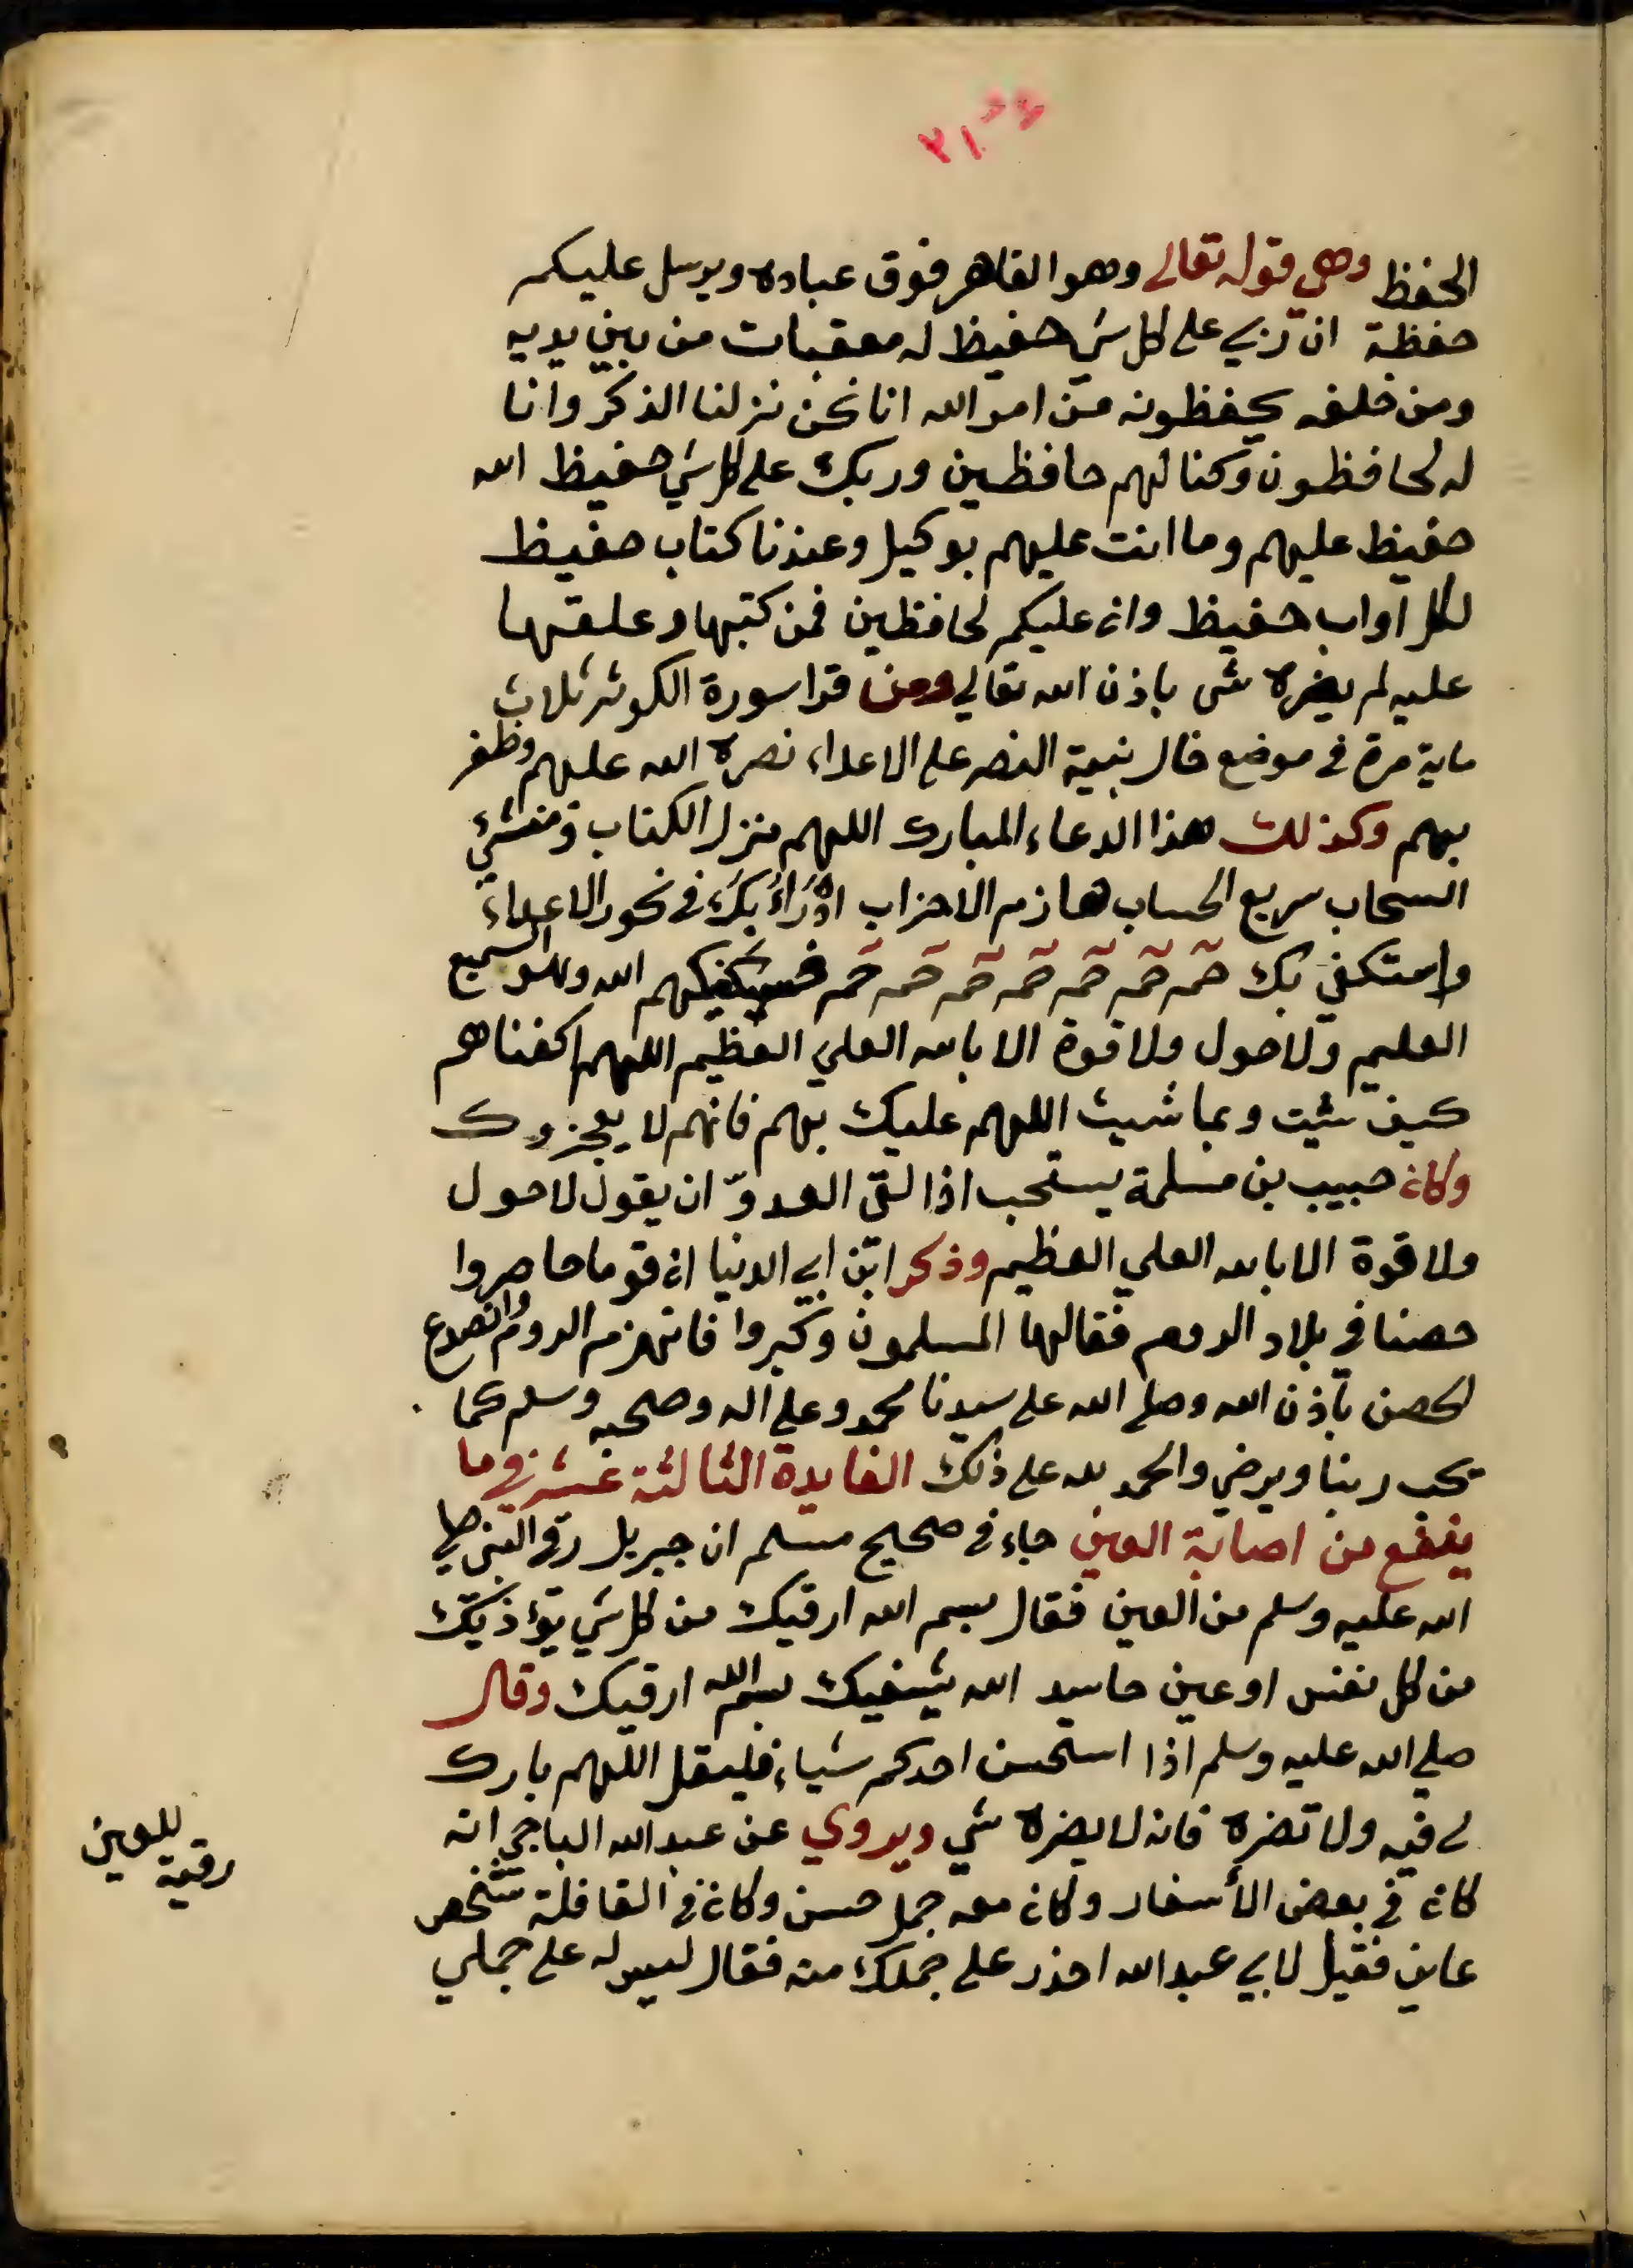 ٢١
الحفظ وهي قوله تعالى وهو القاهر فوق عباده ويرسل عليكم
حفظة ان ربي على كل شي حفيظ له معقبات من بين يديه
ومن خلفه يحفظونه من امر الله انا نحن نزلنا الذكر وانا
له لحافظون وكنا لهم حافظين وربك على كل شي حفيظ الله
حفيظ عليهم وما انت عليهم بوكيل وعندنا كتاب حفيظ
لكل اواب حفيظ وان عليكم لحافظين فمن كتبها وعلقها
عليه لم يضره شي باذن الله تعالي ومن قرا سورة الكوثر ثلاث
ماية مرة في موضع خال بنية النصر على الاعداء نصره الله عليهم وظفر
بهم وكذلك هذا الدعاء المبارك اللهم منزل الكتاب ومنشئ
السحاب سريع الحساب هازم الاحزاب ادْرَاُ بِكَ في نحور الاعداء
واستكفي بك حم حم حم حم حم حم حم فسيكفيكهم الله وهو السميع
العليم ولا حول ولا قوة الا بالله العلي العظيم اللهم اكفناهم
كيف شيت وبما شيت اللهم عليك بهم فانهم لا يعجزوك
وكان حبيب بن مسلمة يستحب اذا لقى العدوّ ان يقول لا حول
ولا قوة الا بالله العلي العظيم وذكر ابن ابي الدنيا ان قوما حاصروا
حصنا في بلاد الروم فقالها المسلمون وكبروا فانهزم الروم وانصدع
الحصن باذن الله وصلى الله على سيدنا محمد وعلى اله وصحبه وسلم كما
يحب ربنا ويرضي والحمد لله على ذلك الفايدة الثالثة عشر في ما
ينفع من اصابة العين جاء في صحيح مسلم ان جبريل رقى النبي صلى
الله عليه وسلم من العين فقال بسم الله ارقيك من كل شي يؤذيك
من كل نفس او عين حاسد الله يشفيك بسم الله ارقيك وقال
صلى الله عليه وسلم اذا استحسن احدكم شياء فليقل اللهم بارك
لي فيه ولا تضره فانه لا يضره شي ويروي عن عبد الله الباجي انه
كان في بعض الأسفار وكان معه جمل حسن وكان في القافلة شخص
عاين فقيل لابي عبد الله احذر على جملك منه فقال ليس له على جملي
رقية للعين